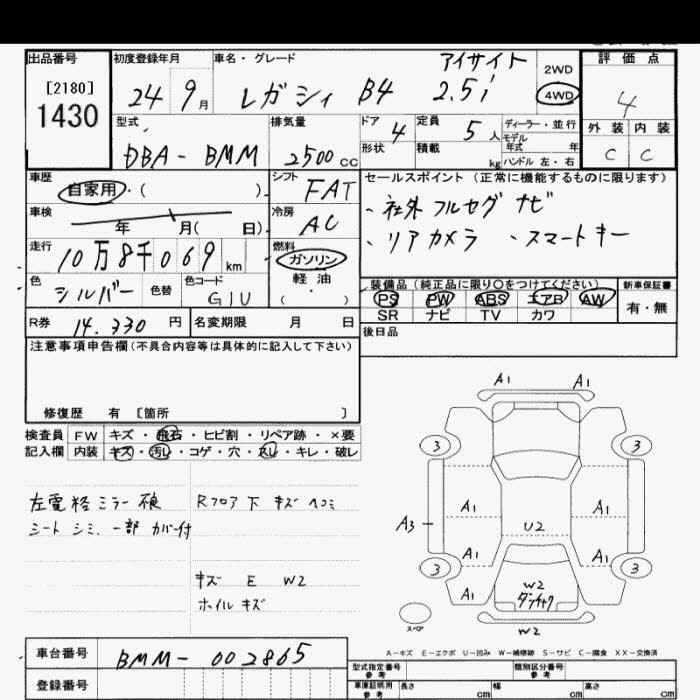 出品番号
[2180]
1430
初度登録年月
24 9月
車名・グレード
アイサイト
レガシィ B4 2.5i
2WD
4WD
評価点
4
外装 内装
C C
型式
DBA-BMM
排気量
2500cc
ドア 4
形状
定員 5人
積載 kg
ディーラー・並行
モデル
年式 年
ハンドル 左・右
車歴
自家用・( )
シフト FAT
車検
年 月( 日)
冷房 AC
走行
10万8千069km
燃料
ガソリン
軽油
( ・ )
色
シルバー
色替
色コード
G1U
R券 14.330 円
名変期限 月 日
セールスポイント(正常に機能するものに限ります)
、社外フルセグナビ
・リアカメラ 、スマートキー
装備品(純正品に限り○をつけてください)
PS PW ABS エアB AW
SR ナビ TV カワ
新車保証書
有・無
後日品
注意事項申告欄(不具合内容等は具体的に記入して下さい)
修復歴 有 [箇所 ]
検査員
記入欄
FW キズ・飛石・ヒビ割・リペア跡・×要
内装 キズ・汚レ・コゲ・穴・スレ・キレ・破レ
左電格ミラー破
シートシミ、一部カバー付
Rフロア下キズヘコミ
キズ E W2
ホイルキズ
A1 A1
3 3
A1 A1
A3
U2
A1 A1
3 3
A1
W2
W2
スペア
A-キズ E-エクボ U-凹み W-補修跡 S-サビ C-腐食 XX-交換済
車台番号 BMM-002865
登録番号
型式指定番号
参考
類別区分番号
参考
車庫証明用
参考
長さ cm
幅 cm
高さ cm